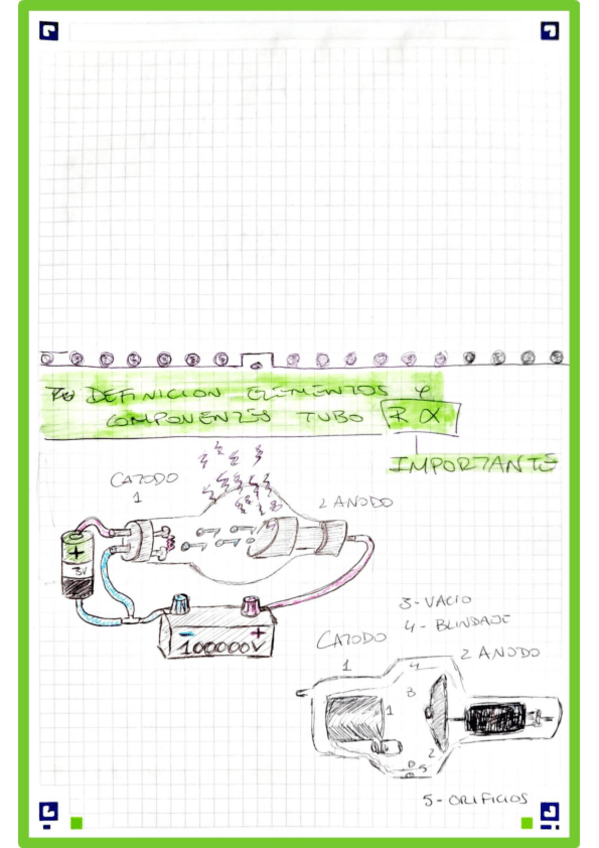 DEFINICION ELEMENTOS Y
COMPONENTES TUBO RX
IMPORTANTE
CATODO
1
2 ANODO
+
3V
- +
100000V
3- VACIO
4- BLINDAJE
CATODO
1
4
2 ANODO
3
1
2
5
5- ORIFICIOS